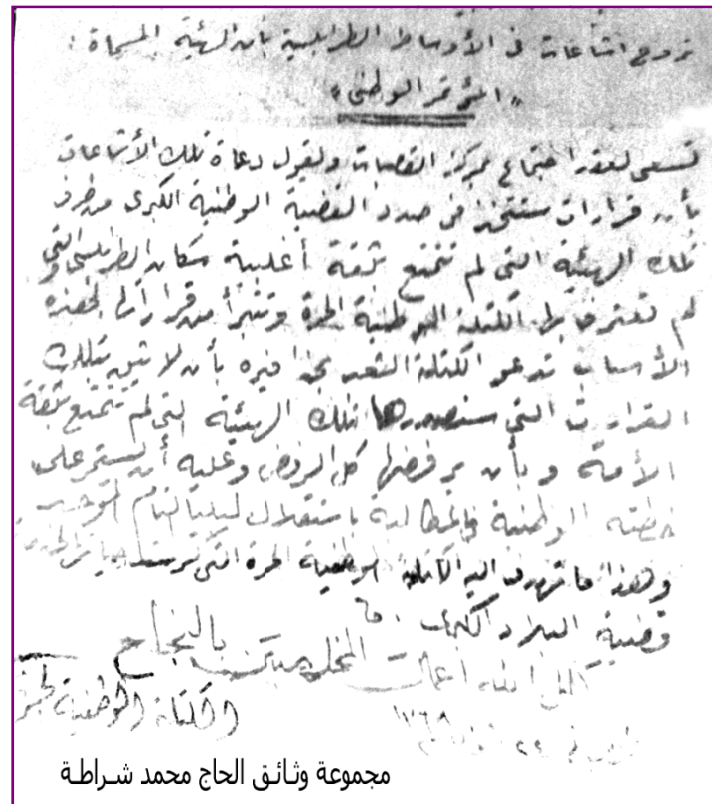 تروج اشاعات في الأوساط الطرابلسية بأن الهيئة المسماة :
" المؤتمر الوطني "
تسعى لعقد اجتماع بمركز القصبات وتقول دعاة تلك الأشاعات
بأن قرارات ستتخذ في صدد القضية الوطنية الكبرى من طرف
تلك الهيئة التي لم تتمتع بثقة أغلبية سكان الطرابلسي والتي
لم تعترف بها الكتلة الوطنية الحرة وتتبرأ من قراراتها لهذه
الأسباب تدعو الكتلة الشعب بحذافيره بأن لا يثق بتلك
القرارات التي ستصدرها تلك الهيئة التي لم تتمتع بثقة
الأمة وبأن يرفضها كل الرفض وعليه أن يستمر على
خطته الوطنية والمطالبة باستقلال ليبيا التام الموحد
وهذا ما تهدف اليه الكتلة الوطنية الحرة التي
قضية البلاد الكبرى . م
كلل الله أعمال المخلصين بالنجاح
الكتلة الوطنية الحرة
في ٢٤ ١٣٦٨
مجموعة وثائق الحاج محمد شراطة